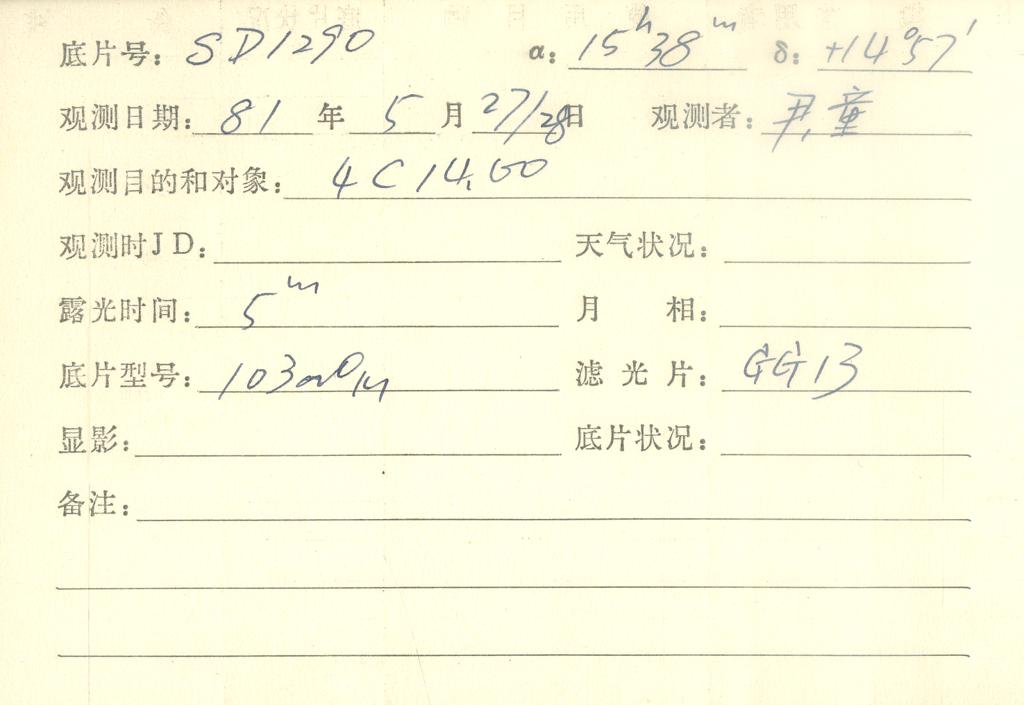 底片号: SD1290 α: 15ʰ38ᵐ δ: +14°57′
观测日期: 81 年 5 月 27/28 日 观测者: 尹, 童
观测目的和对象: 4C 14.60
观测时JD: 天气状况:
露光时间: 5ᵐ 月 相:
底片型号: 103aO 滤光片: GG13
显影: 底片状况:
备注: